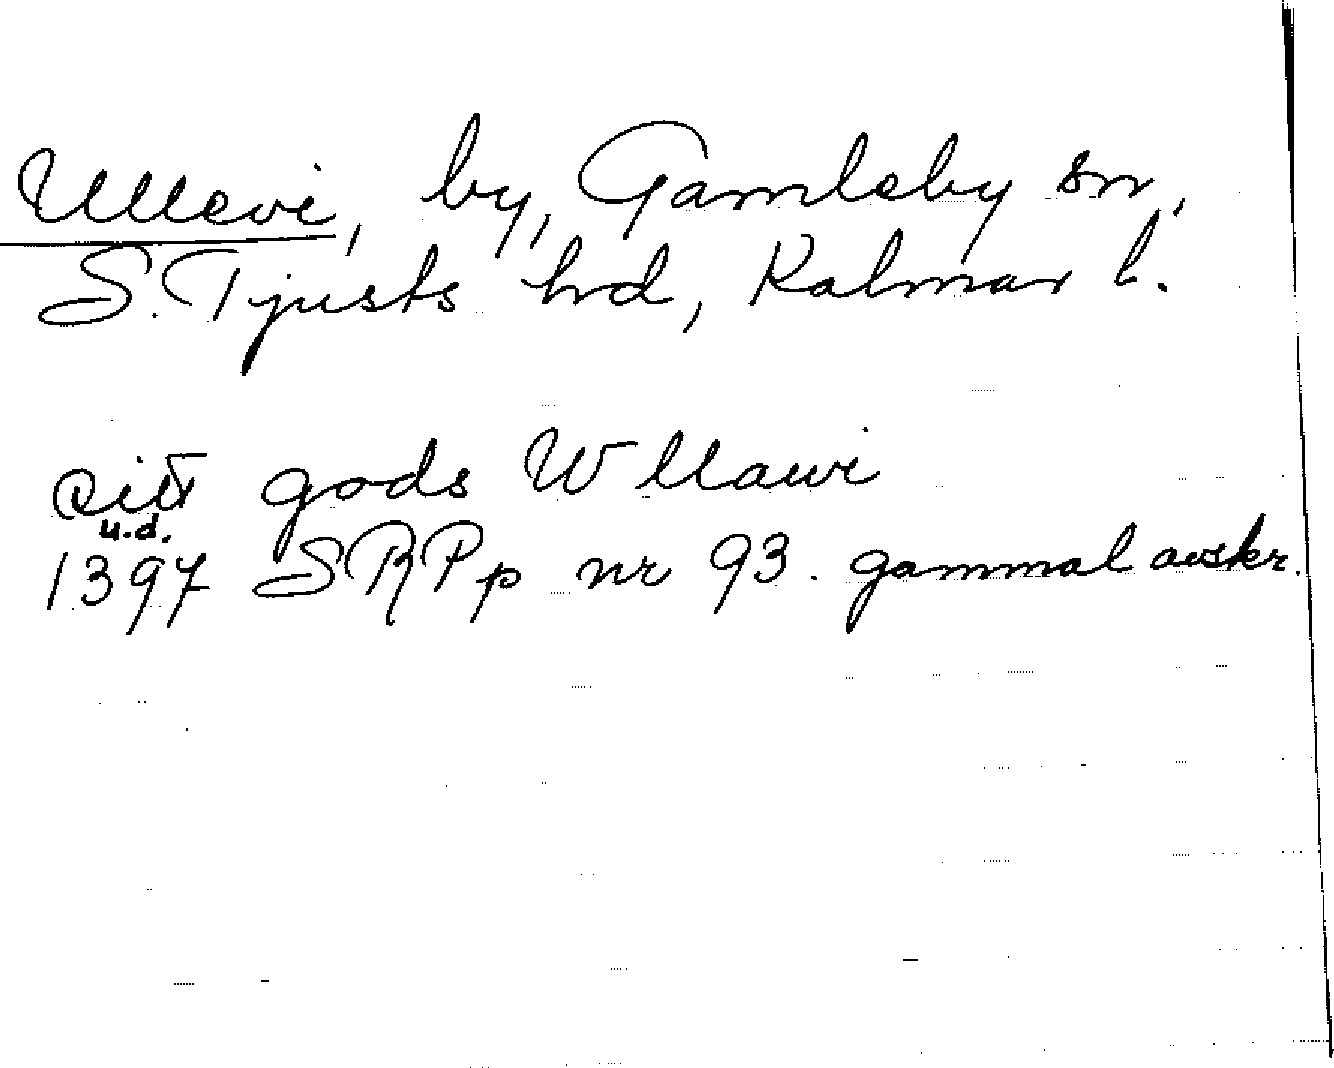 Ullevi, by, Gamleby sn,
S. Tjusts hd, Kalmar l.
eitt gods Wllawi
u.d.
1397 SRPp nr 93. gammal avskr.